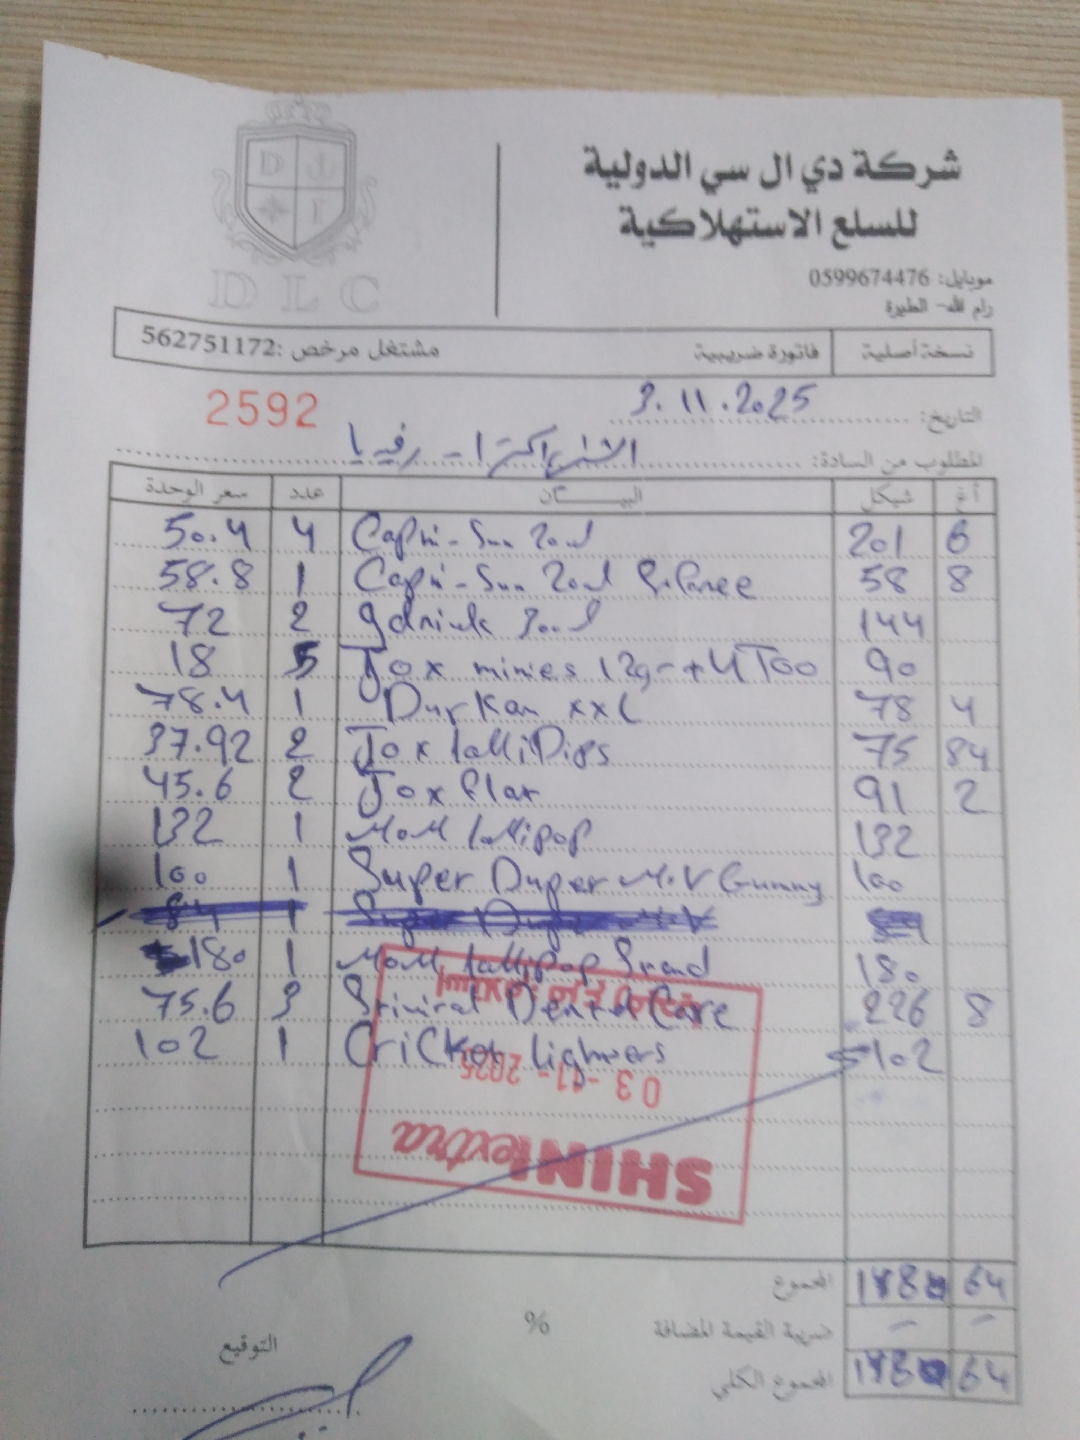 شركة دي ال سي الدولية
للسلع الاستهلاكية
موبايل: 0599674476
رام الله - الطيرة
D L C
نسخة أصلية فاتورة ضريبية مشتغل مرخص: 562751172
التاريخ: 3.11.2025 2592
المطلوب من السادة:
أغ شيكل البيـــان عدد سعر الوحدة
50.4 4 Capri-Sun 201 6
58.8 1 Capri-Sun 58 8
72 2 144
18 5 Jox minies 12gr+4Too 90
78.4 1 Durkan xxl 78 4
37.92 2 Jox lolliDips 75 84
45.6 2 Jox 91 2
132 1 MoM lollipop 132
100 1 Super Duper M.V Gummy 100
84 1 Super Duper M.V 84
180 1 MoM lollipop 180
75.6 3 Dental Care 226 8
102 1 Cricket lighters 102
03-11-2025
SHINI extra
المجموع 64
ضريبة القيمة المضافة % - -
المجموع الكلي 64
التوقيع